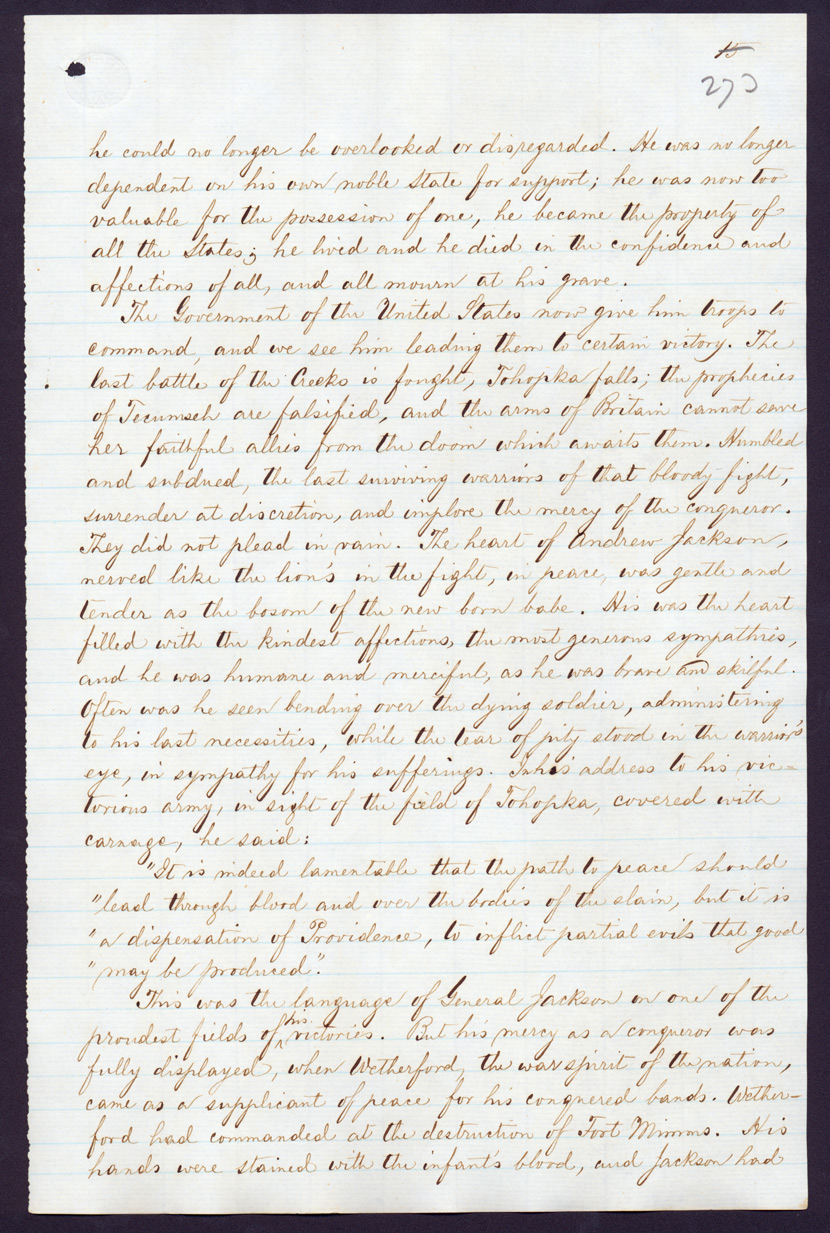 15
273
he could no longer be overlooked or disregarded. He was no longer
dependent on his own noble State for support; he was now too
valuable for the possession of one, he became the property of
all the States; he lived and he died in the confidence and
affections of all, and all mourn at his grave.
The Government of the United States now give him troops to
command, and we see him leading them to certain victory. The
last battle of the Creeks is fought, Tohopka falls; the prophecies
of Tecumseh are falsified, and the arms of Britain cannot save
her faithful allies from the doom which awaits them. Humbled
and subdued, the last surviving warriors of that bloody fight,
surrender at discretion, and implore the mercy of the conqueror.
They did not plead in vain. The heart of Andrew Jackson,
nerved like the lion's in the fight, in peace, was gentle and
tender as the bosom of the new born babe. His was the heart
filled with the kindest affections, the most generous sympathies,
and he was humane and merciful, as he was brave and skilful.
Often was he seen bending over the dying soldier, administering
to his last necessities, while the tear of pity stood in the warrior's
eye, in sympathy for his sufferings. In his address to his vic=
torious army, in sight of the field of Tohopka, covered with
carnage, he said:
"It is indeed lamentable that the path to peace should
"lead through blood and over the bodies of the slain, but it is
"a dispensation of Providence, to inflict partial evils that good
"may be produced".
This was the language of General Jackson on one of the
proudest fields of his victories. But his mercy as a conqueror was
fully displayed, when Wetherford, the war spirit of the nation,
came as a supplicant of peace for his conquered bands. Wether=
ford had commanded at the destruction of Fort Mimms. His
hands were stained with the infant's blood, and Jackson had